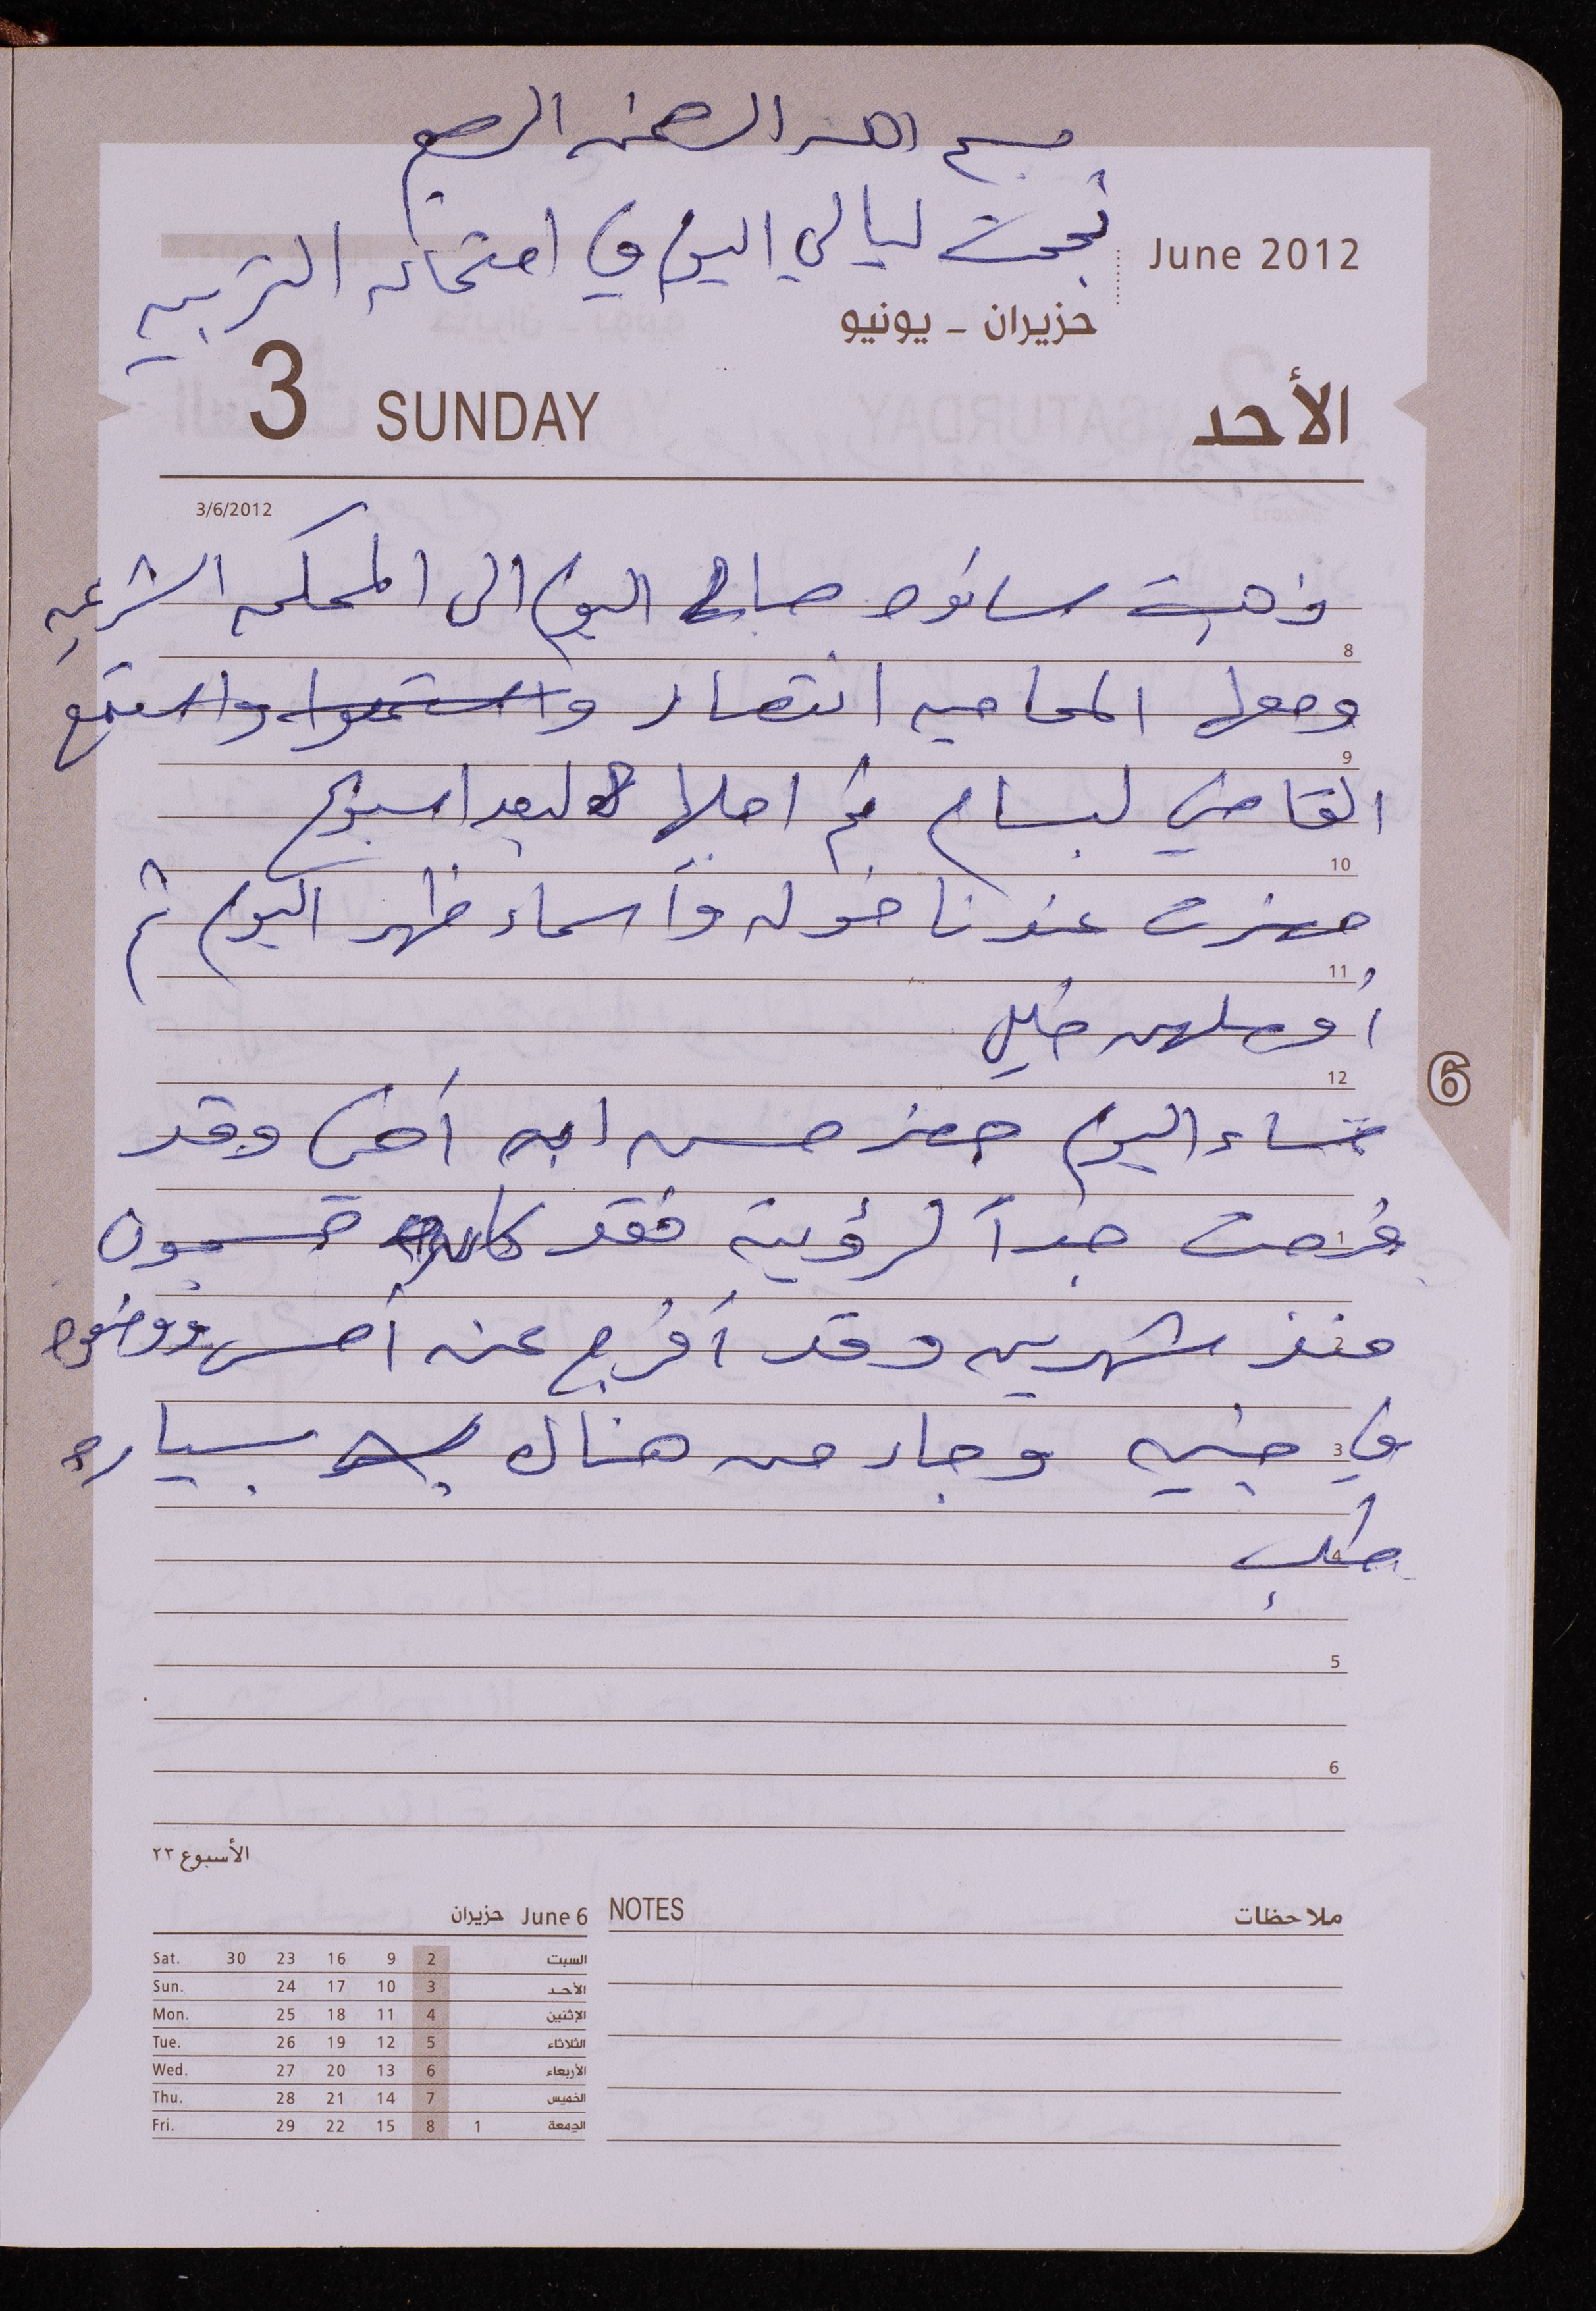 بسم الله الرحمن الرحيم
نجحت ليالي اليوم في امتحان التربيه
June 2012
حزيران - يونيو
3 SUNDAY الأحد
3/6/2012
ذهبت ساندره صباح اليوم الى المحكمه الشرعيه
8
ومعها المحاميه انتصار واستمعوا واستمع
9
القاضي لبسام ثم اجلها لبعد اسبوع
10
حضرت عندنا خوله وأسماء ظهر اليوم ثم
11
أوصلهن خليل
12
مساء اليوم حضر حسن ابن أخي وقد
فرحت جداً لرؤيته فقد كان مسجون
1
منذ شهرين وقد أفرج عنه أمس ووضعوه
2
في جنين وجاء من هناك بسياره
3
طلب
4
5
6
6
الأسبوع ٢٣
June 6 حزيران
NOTES ملاحظات
Sat. 30 23 16 9 2 السبت
Sun. 24 17 10 3 الأحد
Mon. 25 18 11 4 الإثنين
Tue. 26 19 12 5 الثلاثاء
Wed. 27 20 13 6 الأربعاء
Thu. 28 21 14 7 الخميس
Fri. 29 22 15 8 1 الجمعة